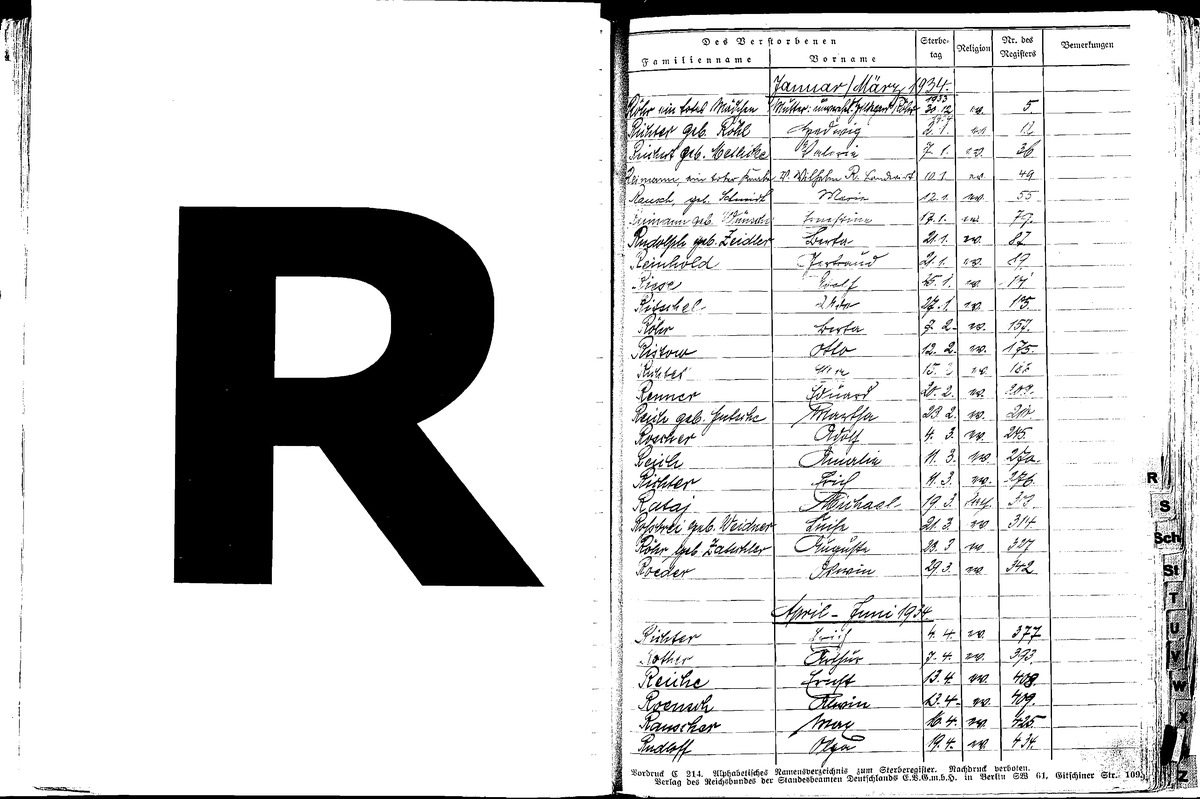 R
Des Verstorbenen Sterbe- Religion Nr. des Bemerkungen
Familienname Vorname tag Registers
Januar/März 1934.
Röhr ein totes Mädchen Mutter: 1933 30.12. ev. 5.
Richter geb. Röhl Hedwig 2.1. ev. 12
geb. Valeria 7.1. ev. 36
Reimann, ein toter Knabe V. Wilhelm R. Landwirt 10.1. ev. 49
Rausch, geb. Schmidt Marie 12.1. ev. 55
Reimann geb. Ernestine 17.1. ev. 79.
Rudolph geb. Zeidler Berta 21.1. ev. 87
Reinhold Gertraud 21.1. ev.
25.1. ev.
Ritschel 27.1. ev.
Röhr Berta 9.2. ev. 157.
Ristow Otto 12.2. ev. 175.
Richter 15. ev.
Renner Eduard 20.2. ev. 209.
Reich geb. Martha 23.2. ev.
Roscher Adolf 4.3. ev. 245.
Reich Amalie 11.3. ev. 270.
Richter Erich 11.3. ev. 276.
Rataj Michael 19.3.
geb. Weidner Luise 21.3. ev. 314
Röhr geb. Auguste 23.3 ev. 327
Roeder Alwin 29.3. ev. 342
April - Juni 1934.
Richter Erich 4.4. ev. 377
Rother Arthur 7.4. ev. 393.
Reiche Ernst 13.4. ev. 408.
Roensch Alwin 13.4. ev. 409.
Rauscher Max 16.4. ev. 425.
Rudoff Olga 19.4. ev. 434.
Vordruck C 214. Alphabetisches Namensverzeichnis zum Sterberegister. Nachdruck verboten.
Verlag des Reichsbundes der Standesbeamten Deutschlands E.V.G.m.b.H. in Berlin SW 61, Gitschiner Str. 109.
R
S
Sch
St
T
U
V
W
X
Z